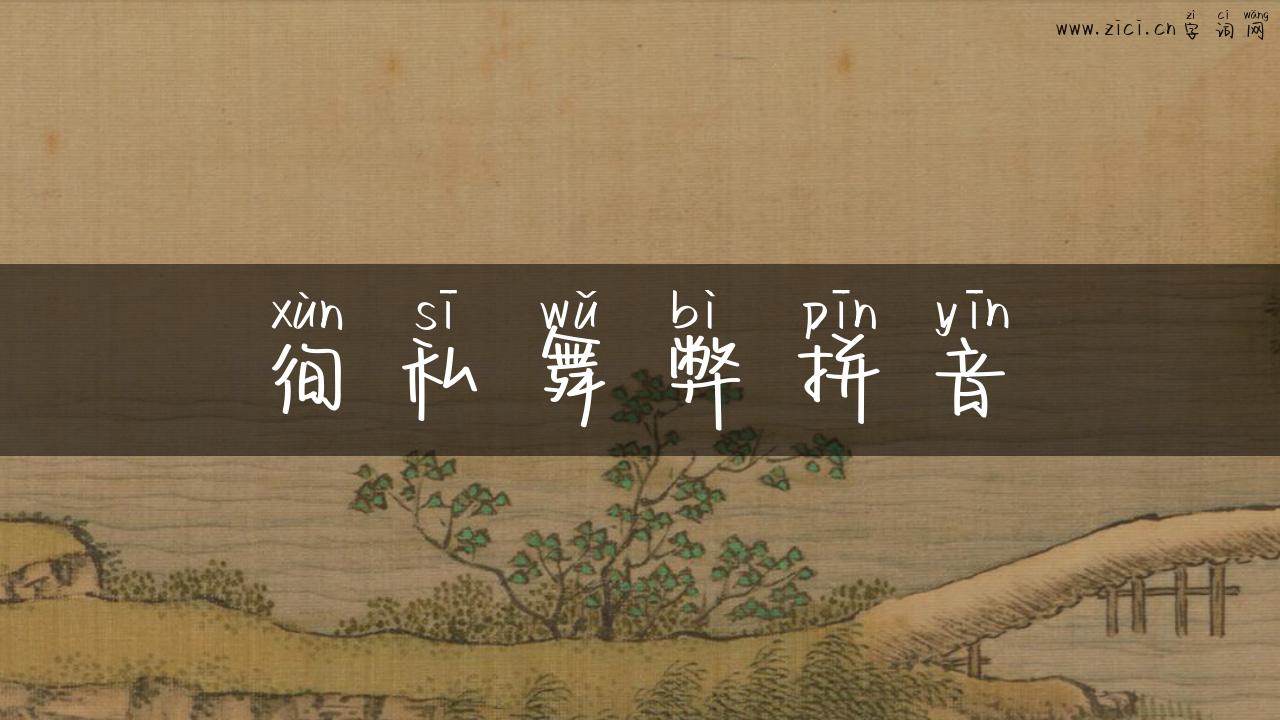 zì cí wǎng
www.zici.cn 字 词 网
xùn sī wǔ bì pīn yīn
徇 私 舞 弊 拼 音